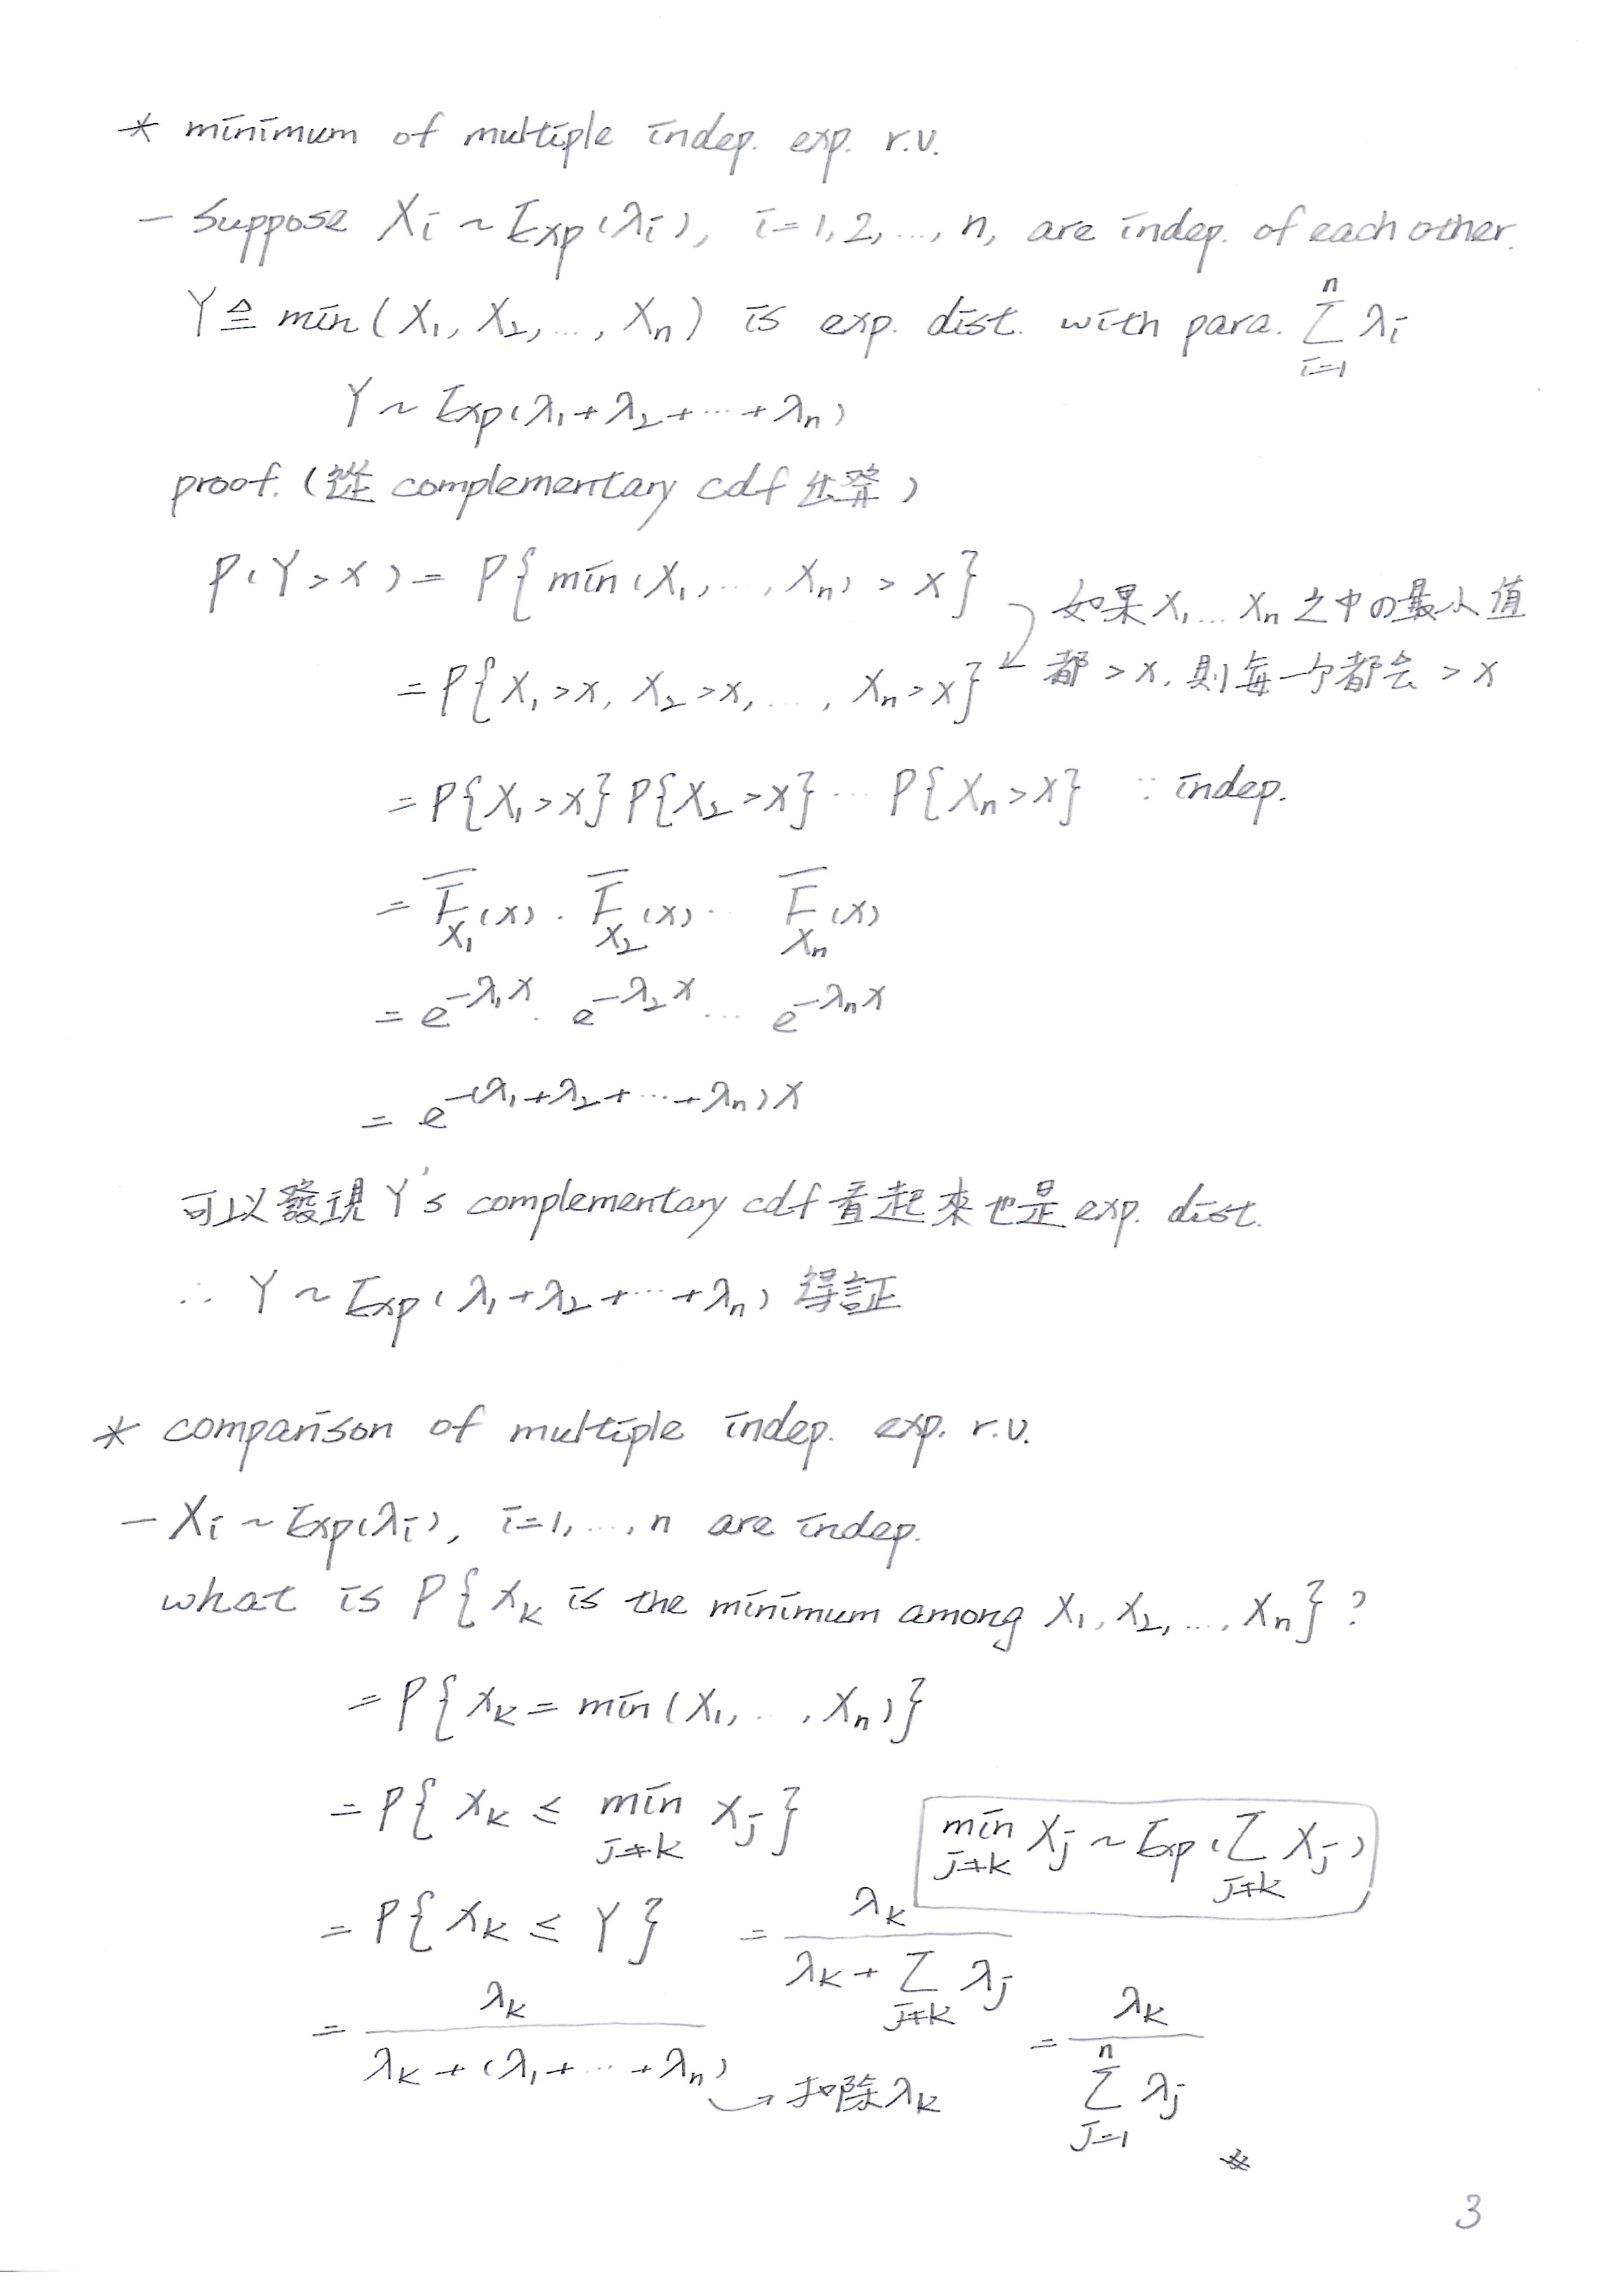 * minimum of multiple indep. exp. r.v.
- Suppose Xᵢ ~ Exp(λᵢ), i=1,2,…,n, are indep. of each other.
Y ≜ min(X₁, X₂, …, Xₙ) is exp. dist. with para. Σ_{i=1}^{n} λᵢ
Y ~ Exp(λ₁+λ₂+…+λₙ)
proof. (從 complementary cdf 出發)
P(Y>x) = P{min(X₁,…,Xₙ) > x}
如果 X₁…Xₙ 之中の最小值
= P{X₁>x, X₂>x, …, Xₙ>x}
都 >x, 則每一个都会 >x
= P{X₁>x}P{X₂>x}…P{Xₙ>x} ∵ indep.
= F̅_{X₁}(x) · F̅_{X₂}(x) … F̅_{Xₙ}(x)
= e^{-λ₁x} · e^{-λ₂x} … e^{-λₙx}
= e^{-(λ₁+λ₂+…+λₙ)x}
可以發現 Y's complementary cdf 看起來也是 exp. dist.
∴ Y ~ Exp(λ₁+λ₂+…+λₙ) 得証
* comparison of multiple indep. exp. r.v.
- Xᵢ ~ Exp(λᵢ), i=1,…,n are indep.
what is P{X_k is the minimum among X₁, X₂, …, Xₙ}?
= P{X_k = min(X₁,…,Xₙ)}
= P{X_k ≤ min_{j≠k} X_j}
min_{j≠k} X_j ~ Exp(Σ_{j≠k} X_j)
= P{X_k ≤ Y} = λ_k / (λ_k + Σ_{j≠k} λ_j)
= λ_k / (λ_k + (λ₁+…+λₙ)) → 扣除λ_k = λ_k / Σ_{j=1}^{n} λ_j #
3